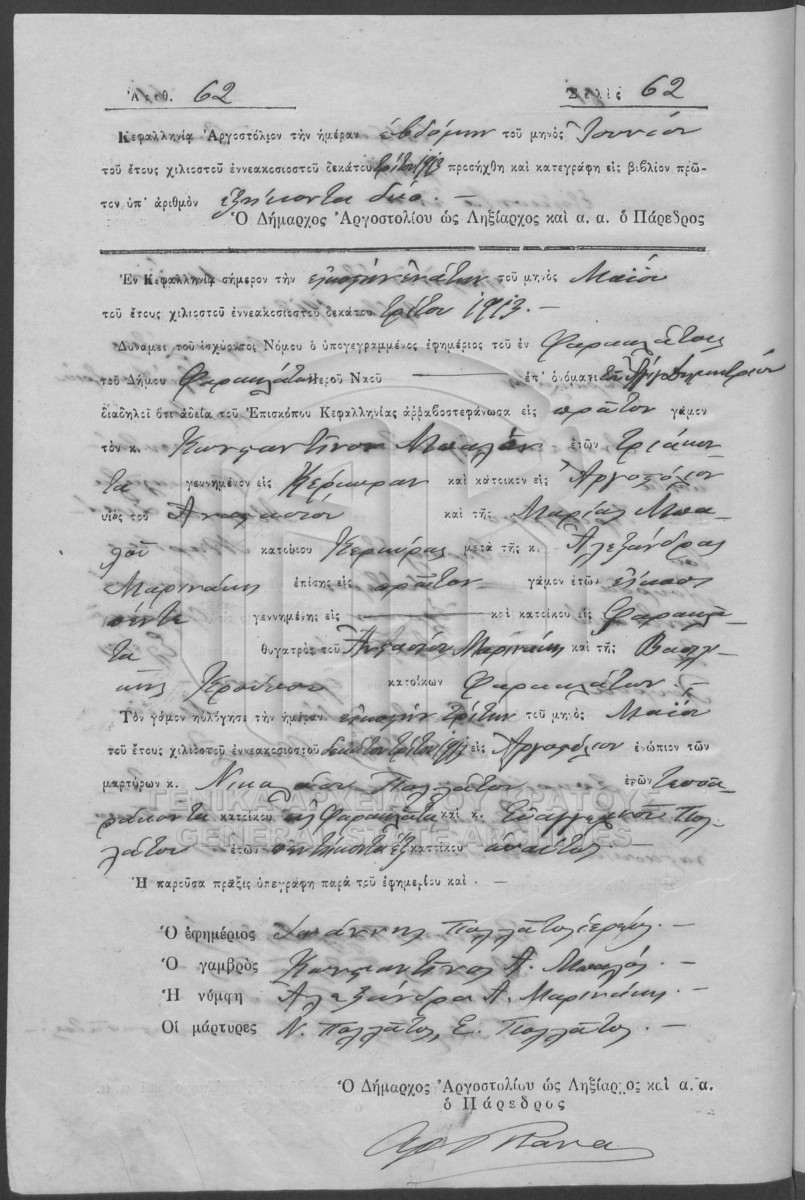 Ἀριθ. 62 Σελὶς 62
Κεφαλληνία Ἀργοστόλιον τὴν ἡμέραν ἑβδόμην τοῦ μηνὸς Ἰουνίου
τοῦ ἔτους χιλιοστοῦ ἐννεακοσιοστοῦ δεκάτου τρίτου 1913 προσήχθη καὶ κατεγράφη εἰς βιβλίον πρῶ-
τον ὑπ' ἀριθμὸν ἑξήκοντα δύο. —
Ὁ Δήμαρχος Ἀργοστολίου ὡς Ληξίαρχος καὶ α. α. ὁ Πάρεδρος
Ἐν Κεφαλληνίᾳ σήμερον τὴν εἰκοστὴν ἐνάτην τοῦ μηνὸς Μαΐου
τοῦ ἔτους χιλιοστοῦ ἐννεακοσιοστοῦ δεκάτου τρίτου 1913. —
Δυνάμει τοῦ ἰσχύοντος Νόμου ὁ ὑπογεγραμμένος ἐφημέριος τοῦ ἐν Φαρακλάτοις
τοῦ Δήμου Φαρακλάτων Ἱεροῦ Ναοῦ — ἐπ' ὀνόματι τοῦ Ἁγίου Δημητρίου
διαδηλοῖ ὅτι ἀδείᾳ τοῦ Ἐπισκόπου Κεφαλληνίας ἀρραβοστεφάνωσα εἰς πρῶτον γάμον
τὸν κ. Κωνσταντῖνον Μπαλὸν ἐτῶν τριάκον-
τα γεννημένον εἰς Κέρκυραν καὶ κάτοικον εἰς Ἀργοστόλιον
υἱὸς τοῦ Ἀναστασίου καὶ τῆς Μαρίας Μπα-
λοῦ κατοίκου Κερκύρας μετὰ τῆς κ. Ἀλεξάνδρας
Μαρινάκη ἐπίσης εἰς πρῶτον γάμον ἐτῶν εἴκοσι
πέντε γεννημένης εἰς — καὶ κατοίκου εἰς Φαρακλᾶ-
τα θυγατρὸς τοῦ Ἀναστασίου Μαρινάκη καὶ τῆς Βασιλι-
κῆς κατοίκων Φαρακλάτων. —
Τὸν γάμον ηὐλόγησε τὴν ἡμέραν εἰκοστὴν τρίτην τοῦ μηνὸς Μαΐου
τοῦ ἔτους χιλιοστοῦ ἐννεακοσιοστοῦ δεκάτου τρίτου 1913 εἰς Ἀργοστόλιον ἐνώπιον τῶν
μαρτύρων κ. Νικολάου Πολλάτου ἐτῶν τεσσα-
ράκοντα κατοίκου εἰς Φαρακλᾶτα καὶ κ. Εὐαγγελινοῦ Πολ-
λάτου ἐτῶν πεντήκοντα ἓξ κατοίκου —
Ἡ παροῦσα πρᾶξις ὑπεγράφη παρὰ τοῦ ἐφημερίου καὶ . —
Ὁ ἐφημέριος Ἰωάννης Πολλάτος ἱερεύς. —
Ὁ γαμβρὸς Κωνσταντῖνος Α. Μπαλός. —
Ἡ νύμφη Ἀλεξάνδρα Α. Μαρινάκη. —
Οἱ μάρτυρες Ν. Πολλάτος, Ε. Πολλάτος. —
Ὁ Δήμαρχος Ἀργοστολίου ὡς Ληξίαρχος καὶ α. α.
ὁ Πάρεδρος
ΓΕΝΙΚΑ ΑΡΧΕΙΑ ΤΟΥ ΚΡΑΤΟΥΣ
GENERAL STATE ARCHIVES